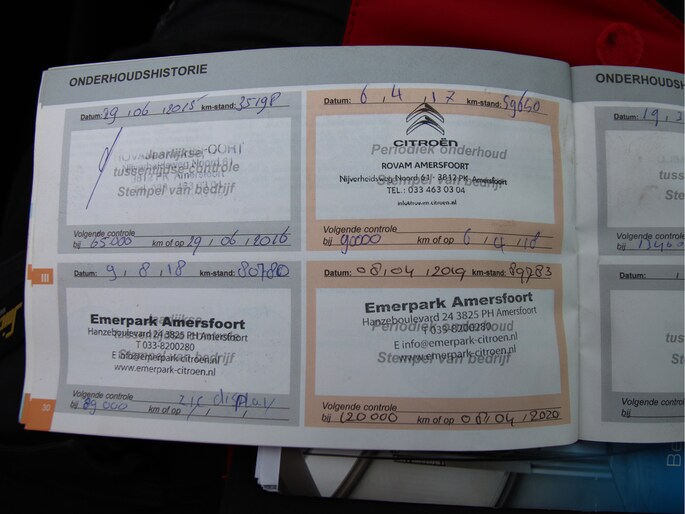 ONDERHOUDSHISTORIE
Datum: 29 , 06 , 2015 km-stand: 35198
ROVAM
Jaarlijkse,
tussentijdse controle
Stempel van bedrijf
Volgende controle
bij 65000 km of op 29 , 06 , 2016
Datum: 6 , 4 , 17 km-stand: 59640
CITROËN
Periodiek onderhoud
ROVAM AMERSFOORT
Nijverheidsweg Noord 61 - 3812 PK Amersfoort
Stempel van bedrijf
TEL.: 033 463 03 04
Volgende controle
bij 90000 km of op 6 , 4 , 18
III
Datum: 9 , 8 , 18 km-stand: 80780
Emerpark Amersfoort
Hanzeboulevard 24 3825 PH Amersfoort
tussentijdse controle
T 033-8200280
Stempel van bedrijf
E info@emerpark-citroen.nl
www.emerpark-citroen.nl
Volgende controle
bij 89000 km of op zie display
30
Datum: 08 , 04 , 2019 km-stand: 89983
Emerpark Amersfoort
Hanzeboulevard 24 3825 PH Amersfoort
Periodiek onderhoud
T 033-8200280
E info@emerpark-citroen.nl
Stempel van bedrijf
www.emerpark-citroen.nl
Volgende controle
bij 120000 km of op 08 , 04 , 2020
ONDERHOUDSH
Datum: 19 , 3
tusse
Ste
Volgende
bij
Datum:
tuss
Ste
Volgende
bij